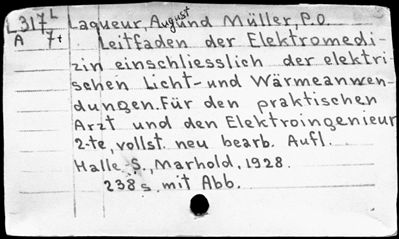 L317L Laqueur, August und Müller, P.O.
A 7+ Leitfaden der Elektromedi-
zin einschliesslich der elektri-
schen Licht- und Wärmeanwen-
dungen. Für den praktischen
Arzt und den Elektroingenieur
2-te, vollst. neu bearb. Aufl.
Halle S., Marhold, 1928.
238 s. mit Abb.